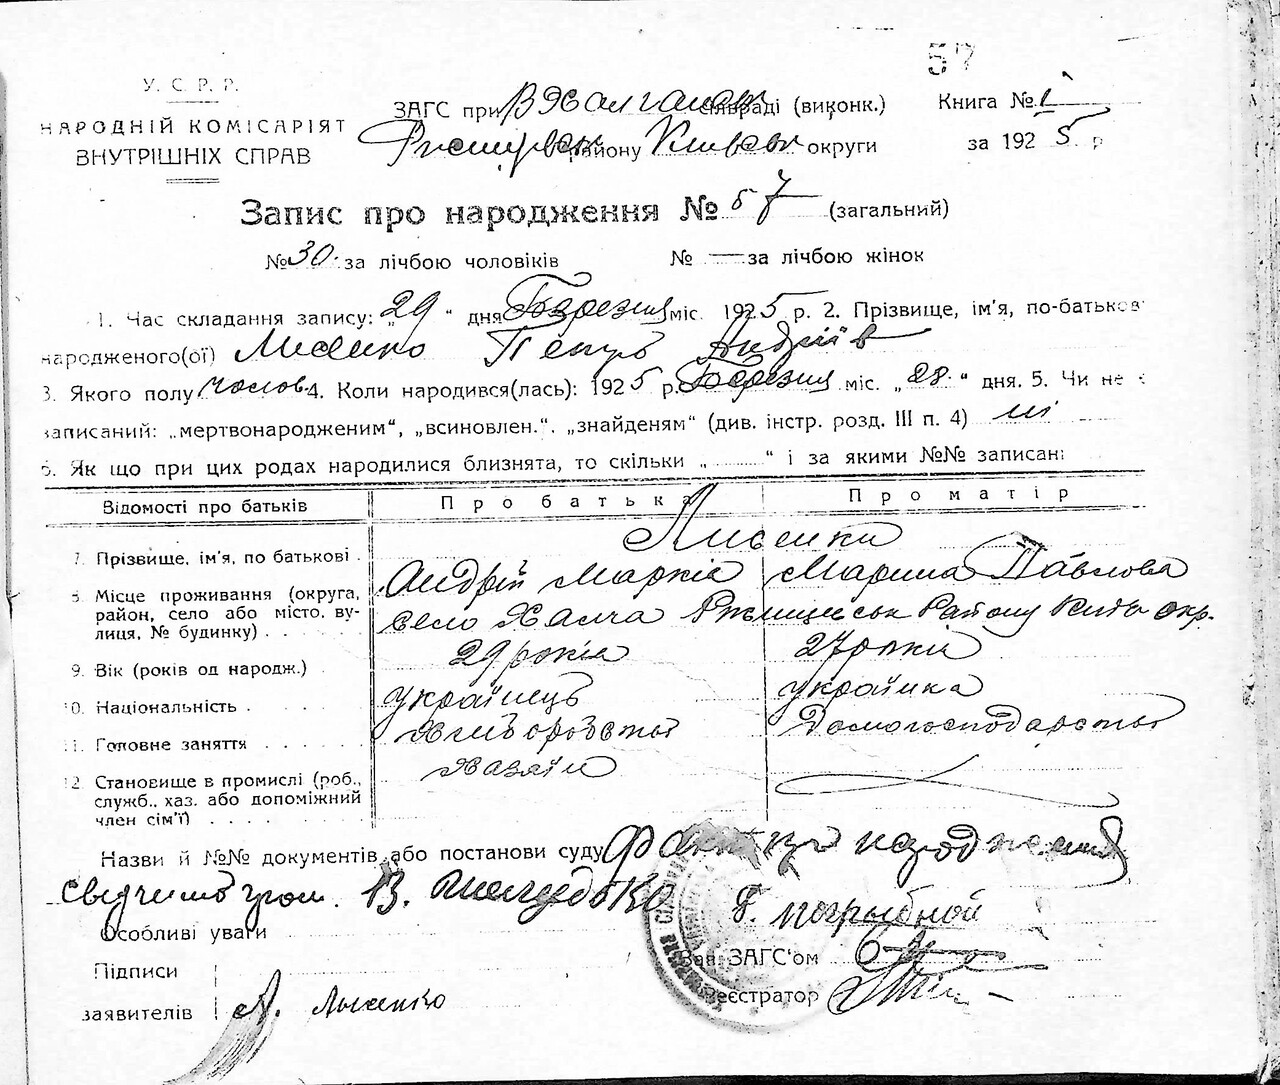 57
У. С. Р. Р.
НАРОДНІЙ КОМІСАРІЯТ
ВНУТРІШНІХ СПРАВ
ЗАГС при сільраді (виконк.)
району Київськ округи
Книга № 1
за 1925 р
Запис про народження № 57 (загальний)
№ 30. за лічбою чоловіків № — за лічбою жінок
1. Час складання запису: „29“ дня Березня міс. 1925 р. 2. Прізвище, ім'я, по-батьков
народженого(ої) Лисенко Петро Андріїв
3. Якого полу чолов 4. Коли народився(лась): 1925 р. Березня міс. „28“ дня. 5. Чи не є
записаний: „мертвонародженим“, „всиновлен.“, „знайденям“ (див. інстр. розд. III п. 4) ні
6. Як що при цих родах народилися близнята, то скільки „ “ і за якими №№ записані
Відомості про батьків Про батька Про матір
7. Прізвище, ім'я, по батькові Лисенки
Андрій Марків Марина Павлова
8. Місце проживання (округа, район, село або місто, вулиця, № будинку) село Халча Ржищівськ Району Київ окр.
9. Вік (років од народж.) 29 років 27 років
10. Національність українець українка
11. Головне заняття Хліборобство Домогосподарство
12. Становище в промислі (роб., служб., хаз. або допоміжний член сім'ї) Хазяїн
Назви й №№ документів або постанови суду Факт народження
свідчимо гром. В. Шелудько
Г. Погрыбной
Особливі уваги
Зав. ЗАГС'ом
Підписи
заявителів А. Лысенко
Реєстратор